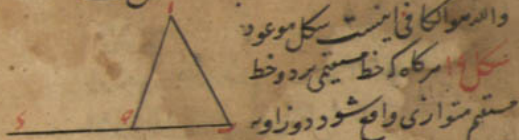 والله هو الکافی اینست شکل موعود
شکل ۲۹ هرکاه که خط مستقیمی بر دو خط
مستقیم متوازی واقع شود دو زاویه
ا
ء ه ب